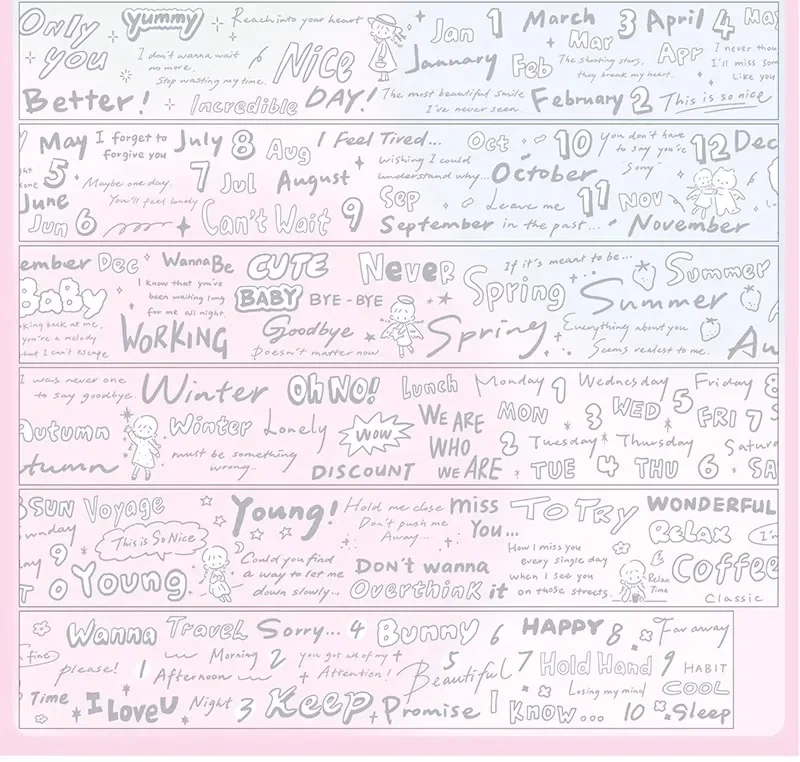 Only you
yummy
Reach into your heart
I don't wanna wait
no more.
Stop wasting my time.
Nice
DAY!
Better!
Incredible
Jan 1
January
Feb
The most beautiful smile
I've never seen.
March
Mar 3
The shooting stars,
they break my heart.
February 2
April 4
Apr
May
I never thou
I'll miss som
Like you
This is so nice
May
5
June
Jun 6
I forget to
forgive you
Maybe one day.
You'll feel lonely
July
7
Jul
8
Aug
August
Can't Wait
9
I Feel Tired...
wishing I could
understand why...
Sep
September
Oct
10
October
Leave me
in the past...
11
Nov
November
you don't have
to say you're
"Sorry"
12
Dec
ember
Dec
Baby
king back at me,
you're a melody
hat I can't escape
WannaBe
I know that you've
been waiting long
for me all night.
WORKING
CUTE
BABY
BYE-BYE
Goodbye
Doesn't matter now
Never
Spring
Spring
If it's meant to be...
Summer
Summer
Everything about you
Seems realest to me.
Au
I was never one
to say goodbye.
Autumn
utumn
Winter
Winter
Lonely
must be something
wrong..
Oh NO!
WOW
DISCOUNT
Lunch
WE ARE
WHO
WE ARE
Monday 1
MON
2
Tuesday
TUE
Wednesday
3
WED
4
Thursday
THU
5
Friday
FRI
6
7
Satur
SA
8
SUN
unday
9
0
Voyage
This is So Nice
Young
Young!
Could you find
a way to let me
down slowly...
Hold me close
Don't push me
Away...
miss
You...
DON'T wanna
Overthink it
TO TRY
How I miss you
every single day
when I see you
on those streets.
WONDERFUL
Relax
I'm
Relax
Time
Coffee
Classic
fine
Wanna
please!
Time
I Love U
Travel
1
Morning
Afternoon
Night
2
3
Sorry...
4
you got all of my
Attention!
Keep
Promise
Bunny
5
Beautiful
6
7
I
Know...
HAPPY
8
Hold Hand
Losing my mind
9
10
Far away
HABIT
COOL
Sleep